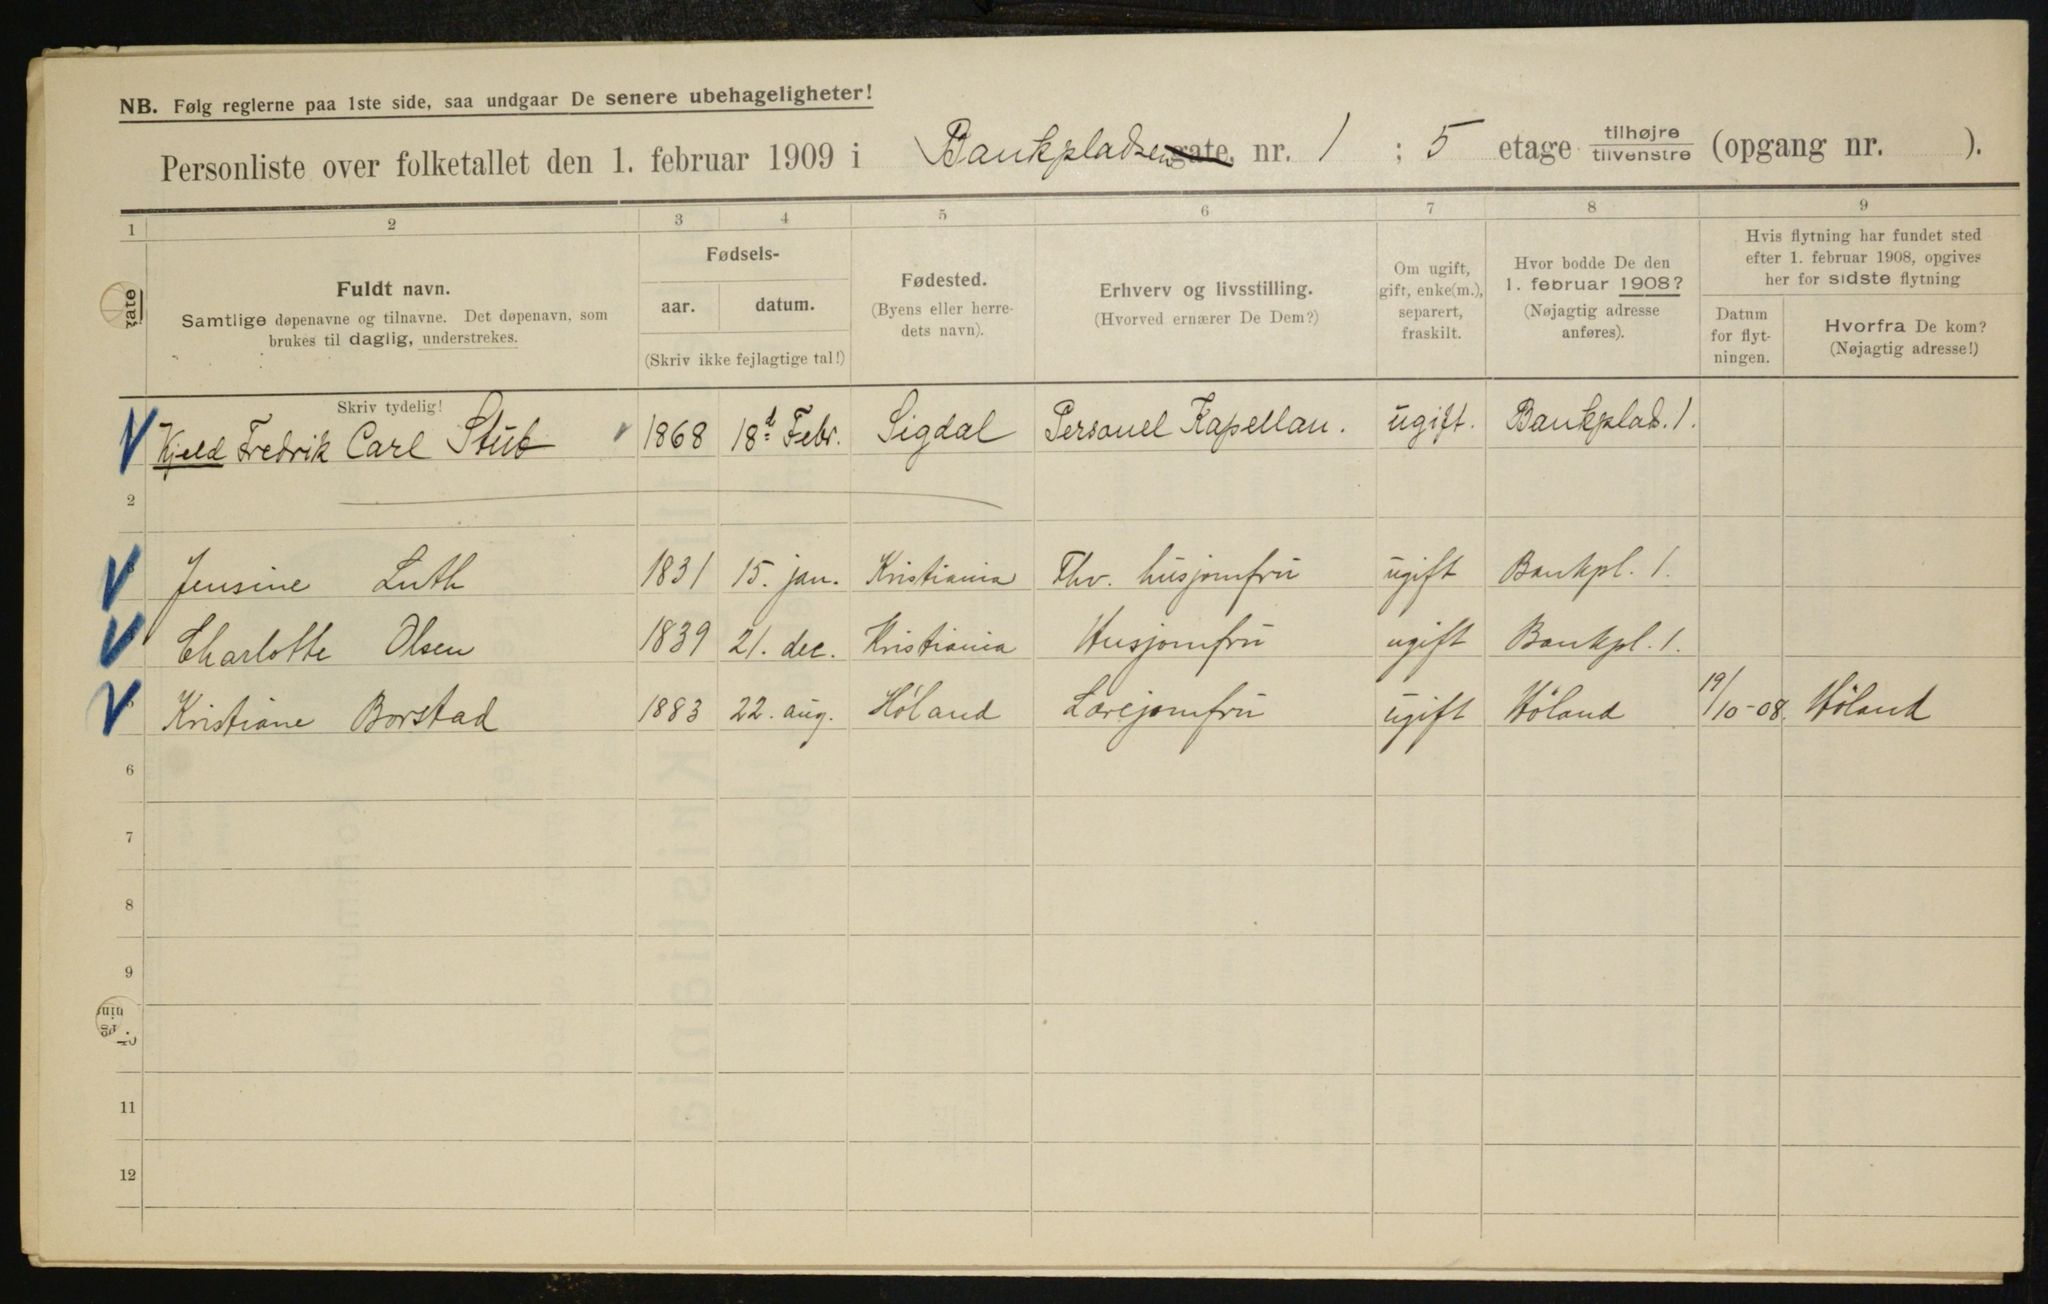 NB. Følg reglerne paa 1ste side, saa undgaar De senere ubehageligheter!
Personliste over folketallet den 1. februar 1909 i Bankpladsen gate, nr. 1 ; 5 etage tilhøjre tilvenstre (opgang nr. ).
1 2 3 4 5 6 7 8 9
Fuldt navn.
Samtlige døpenavne og tilnavne. Det døpenavn, som
brukes til daglig, understrekes.
Fødsels-
aar. datum.
(Skriv ikke fejlagtige tal!)
Fødested.
(Byens eller herre-
dets navn).
Erhverv og livsstilling.
(Hvorved ernærer De Dem?)
Om ugift,
gift, enke(m.),
separert,
fraskilt.
Hvor bodde De den
1. februar 1908?
(Nøjagtig adresse
anføres).
Hvis flytning har fundet sted
efter 1. februar 1908, opgives
her for sidste flytning
Datum
for flyt-
ningen.
Hvorfra De kom?
(Nøjagtig adresse!)
Skriv tydelig!
Kjeld Fredrik Carl Stub 1868 18d Febr. Sigdal Personel Kapellan. ugift. Bankplad. 1.
2
Jensine Luth 1831 15. jan. Kristiania Fhv. husjomfru ugift Bankpl. 1.
Charlotte Olsen 1839 21. dec. Kristiania Husjomfru ugift Bankpl. 1.
Kristiane Borstad 1883 22. aug. Høland Lærejomfru ugift Høland 19/10-08. Høland
6
7
8
9
11
12